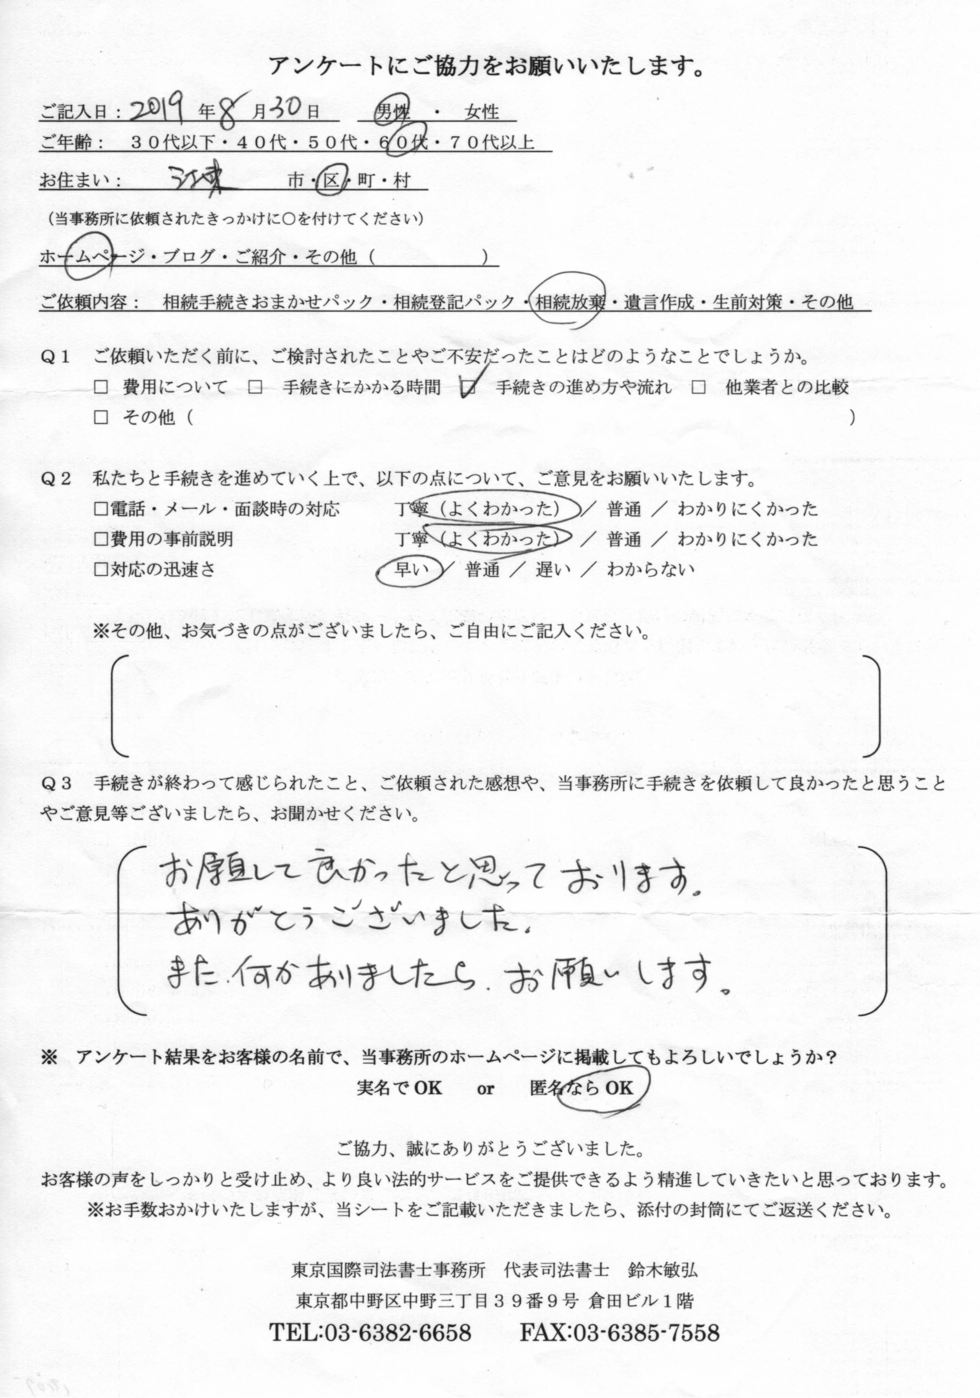 アンケートにご協力をお願いいたします。
ご記入日：2019 年 8 月 30 日　男性 ・ 女性
ご年齢：　３０代以下・４０代・５０代・６０代・７０代以上
お住まい：　江東　市・区・町・村
（当事務所に依頼されたきっかけに〇を付けてください）
ホームページ・ブログ・ご紹介・その他（　　　　　　）
ご依頼内容：　相続手続きおまかせパック・相続登記パック・相続放棄・遺言作成・生前対策・その他
Ｑ１　ご依頼いただく前に、ご検討されたことやご不安だったことはどのようなことでしょうか。
□ 費用について　□ 手続きにかかる時間　☑ 手続きの進め方や流れ　□ 他業者との比較
□ その他（　　　　　　　　　　　　）
Ｑ２　私たちと手続きを進めていく上で、以下の点について、ご意見をお願いいたします。
□電話・メール・面談時の対応　　丁寧（よくわかった）／ 普通 ／ わかりにくかった
□費用の事前説明　　丁寧（よくわかった）／ 普通 ／ わかりにくかった
□対応の迅速さ　　早い ／ 普通 ／ 遅い ／ わからない
※その他、お気づきの点がございましたら、ご自由にご記入ください。
Ｑ３　手続きが終わって感じられたこと、ご依頼された感想や、当事務所に手続きを依頼して良かったと思うこと
やご意見等ございましたら、お聞かせください。
お願して良かったと思っております。
ありがとうございました。
また、何かありましたら、お願いします。
※　アンケート結果をお客様の名前で、当事務所のホームページに掲載してもよろしいでしょうか？
実名で OK　　or　　匿名なら OK
ご協力、誠にありがとうございました。
お客様の声をしっかりと受け止め、より良い法的サービスをご提供できるよう精進していきたいと思っております。
※お手数おかけいたしますが、当シートをご記載いただきましたら、添付の封筒にてご返送ください。
東京国際司法書士事務所　代表司法書士　鈴木敏弘
東京都中野区中野三丁目３９番９号 倉田ビル１階
TEL:03-6382-6658　　FAX:03-6385-7558